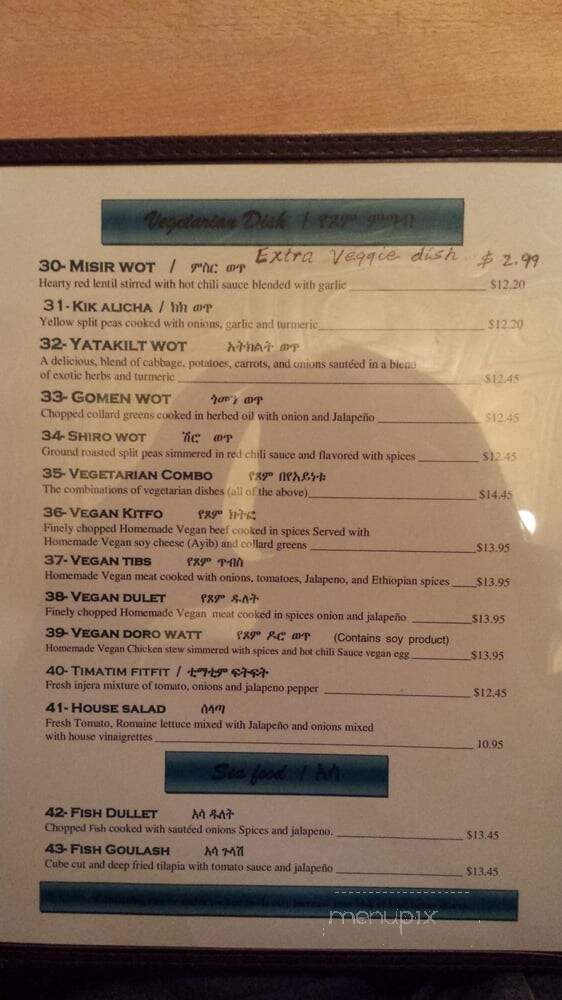 Vegetarian Dish / የጾም ምግብ
Extra Veggie dish $ 2.99
30- MISIR WOT / ምስር ወጥ
Hearty red lentil stirred with hot chili sauce blended with garlic $12.20
31- KIK ALICHA / ክክ ወጥ
Yellow split peas cooked with onions, garlic and turmeric $12.20
32- YATAKILT WOT አትክልት ወጥ
A delicious, blend of cabbage, potatoes, carrots, and onions sautéed in a blend
of exotic herbs and turmeric $12.45
33- GOMEN WOT ጎመን ወጥ
Chopped collard greens cooked in herbed oil with onion and Jalapeño $12.45
34- SHIRO WOT ሽሮ ወጥ
Ground roasted split peas simmered in red chili sauce and flavored with spices $12.45
35- VEGETARIAN COMBO የጾም በየአይነቱ
The combinations of vegetarian dishes (all of the above) $14.45
36- VEGAN KITFO የጾም ክትፎ
Finely chopped Homemade Vegan beef cooked in spices Served with
Homemade Vegan soy cheese (Ayib) and collard greens $13.95
37- VEGAN TIBS የጾም ጥብስ
Homemade Vegan meat cooked with onions, tomatoes, Jalapeno, and Ethiopian spices $13.95
38- VEGAN DULET የጾም ዱለት
Finely chopped Homemade Vegan meat cooked in spices onion and jalapeño $13.95
39- VEGAN DORO WATT የጾም ዶሮ ወጥ (Contains soy product)
Homemade Vegan Chicken stew simmered with spices and hot chili Sauce vegan egg $13.95
40- TIMATIM FITFIT / ቲማቲም ፍትፍት
Fresh injera mixture of tomato, onions and jalapeno pepper $12.45
41- HOUSE SALAD ሰላጣ
Fresh Tomato, Romaine lettuce mixed with Jalapeño and onions mixed
with house vinaigrettes 10.95
Sea food / አሳ
42- FISH DULLET አሳ ዱለት
Chopped Fish cooked with sautéed onions Spices and jalapeno. $13.45
43- FISH GOULASH አሳ ጉላሽ
Cube cut and deep fried tilapia with tomato sauce and jalapeño $13.45
menupix